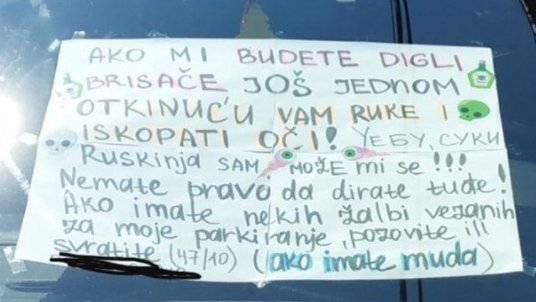 AKO MI BUDETE DIGLI
BRISAČE JOŠ JEDNOM
OTKINUĆU VAM RUKE I
ISKOPATI OČI! УЕБУ, СУКИ
Ruskinja SAM MOŽE mi se!!!
Nemate pravo da dirate tuđe!
Ako imate nekih žalbi vezanih
za moje parkiranje, pozovite ili
svratite (47/10) (ako imate muda)